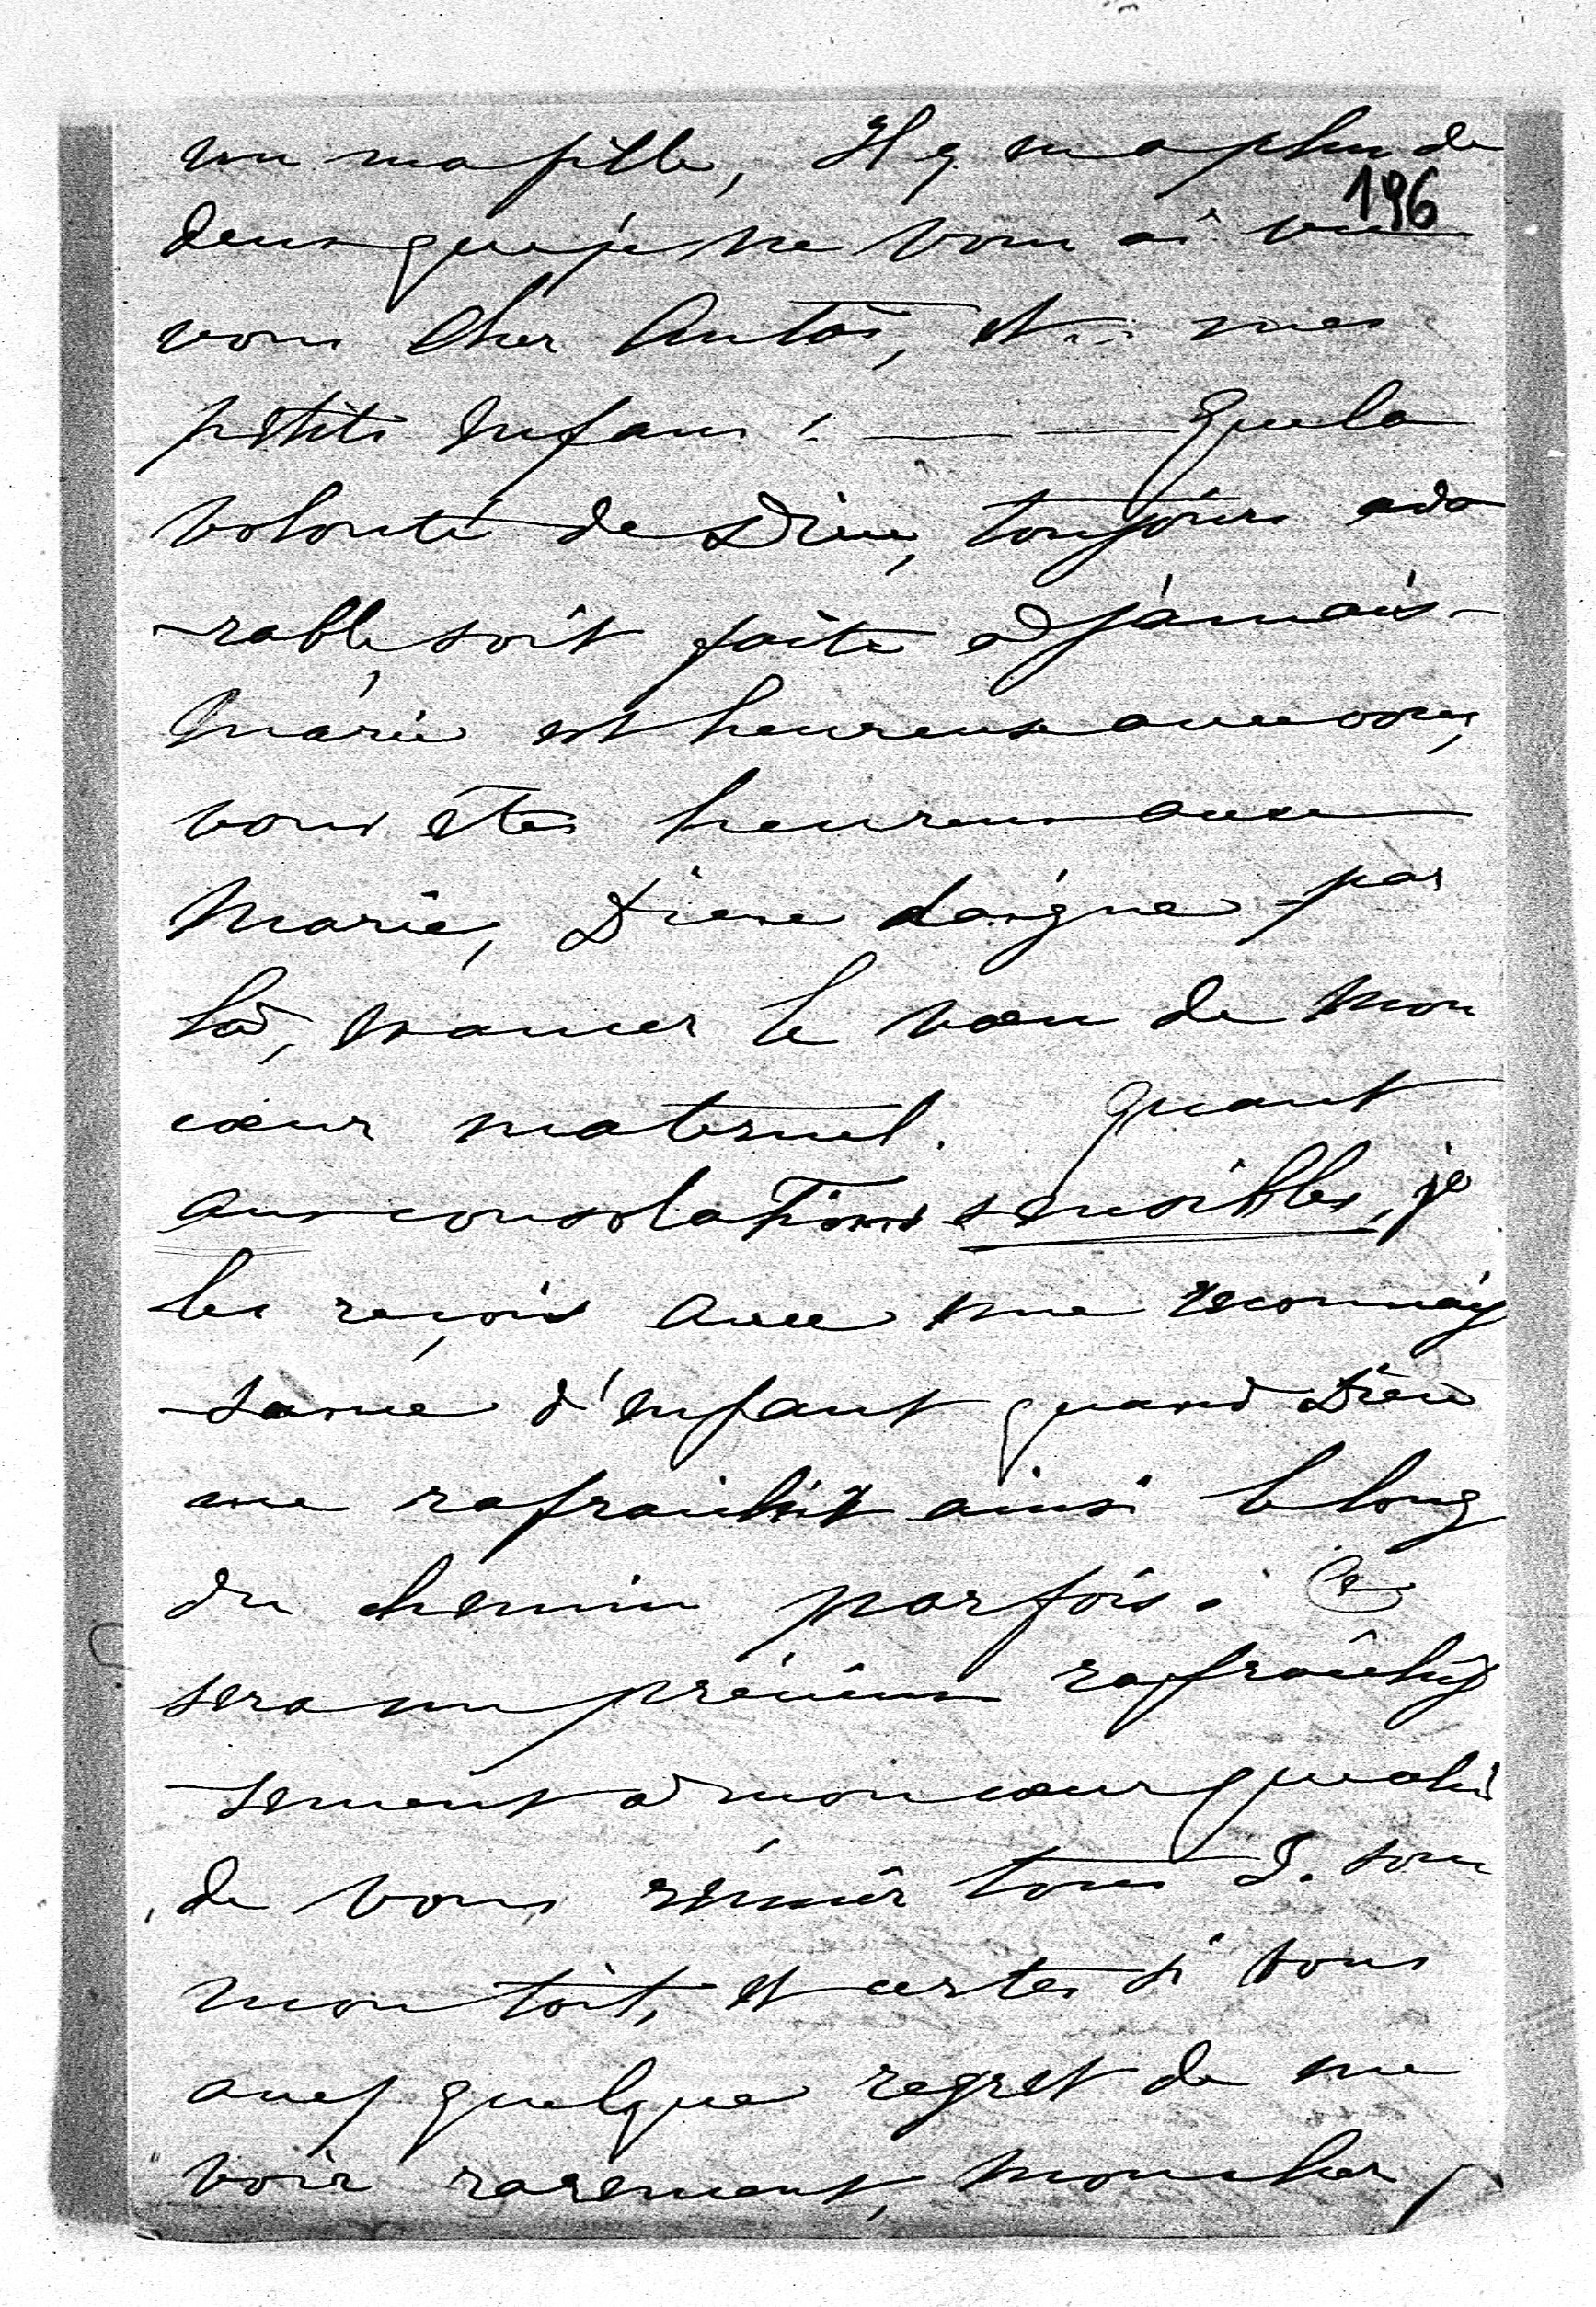 vu ma fille, Il y en a plus de
196
deux que je ne vous ai vu
vous Cher Antoi, et mes
petits enfans! — — Que la
volonté de Dieu, toujours ado
-rable, soit faite à jamais -
Marie est heureuse avec vous,
vous êtes heureux avec
Marie, Dieu daigne par
là, exaucer le vœu de mon
cœur maternel. Quant
aux consolations sensibles, je
les reçois avec une reconnais
-sance d'enfant quand Dieu
me rafraichit ainsi le long
du chemin parfois. Ce
sera un précieux rafraîchis
-sement à mon cœur que celui
de vous réunir tous 5. sous
mon toit, et certes si vous
avez quelque regret de me
voir rarement, mon cher